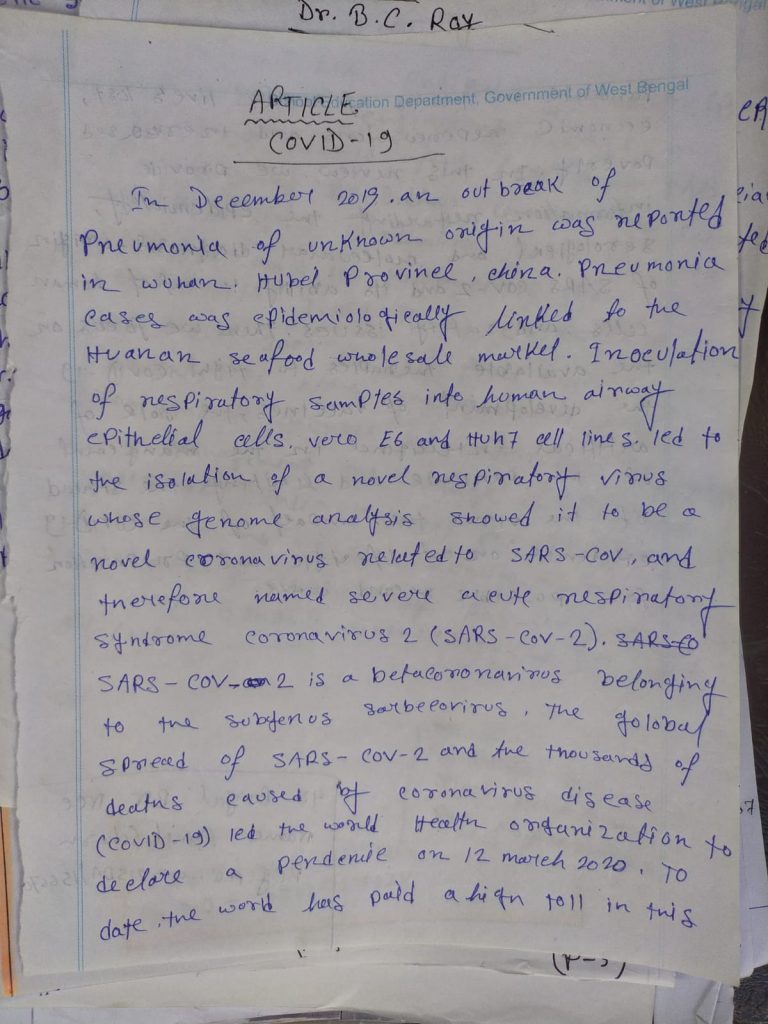 Dr. B. C. Ray
ARTICLE
cation Department, Government of West Bengal
COVID-19
In December 2019. an out break of
Pneumonia of unknown origin was reported
in wuhan. Hubel Province, china. Pneumonia
cases was epidemiologically linked to the
Huanan seafood wholesale market. Inoculation
of respiratory samples into human airway
epithelial cells, vero E6 and Huh7 cell lines. led to
the isolation of a novel respiratory virus
whose genome analysis showed it to be a
novel coronavirus related to SARS-COV, and
therefore named severe acute respiratory
syndrome coronavirus 2 (SARS-CoV-2). SARS-CO
SARS-COV-2 is a betacoronavirus belonging
to the subgenus sarbecovirus. The golobal
spread of SARS-COV-2 and the thousands of
deaths caused by coronavirus disease
(COVID-19) led the world Health organization to
declare a pendemic on 12 march 2020. TO
date, the world has paid a high toll in this